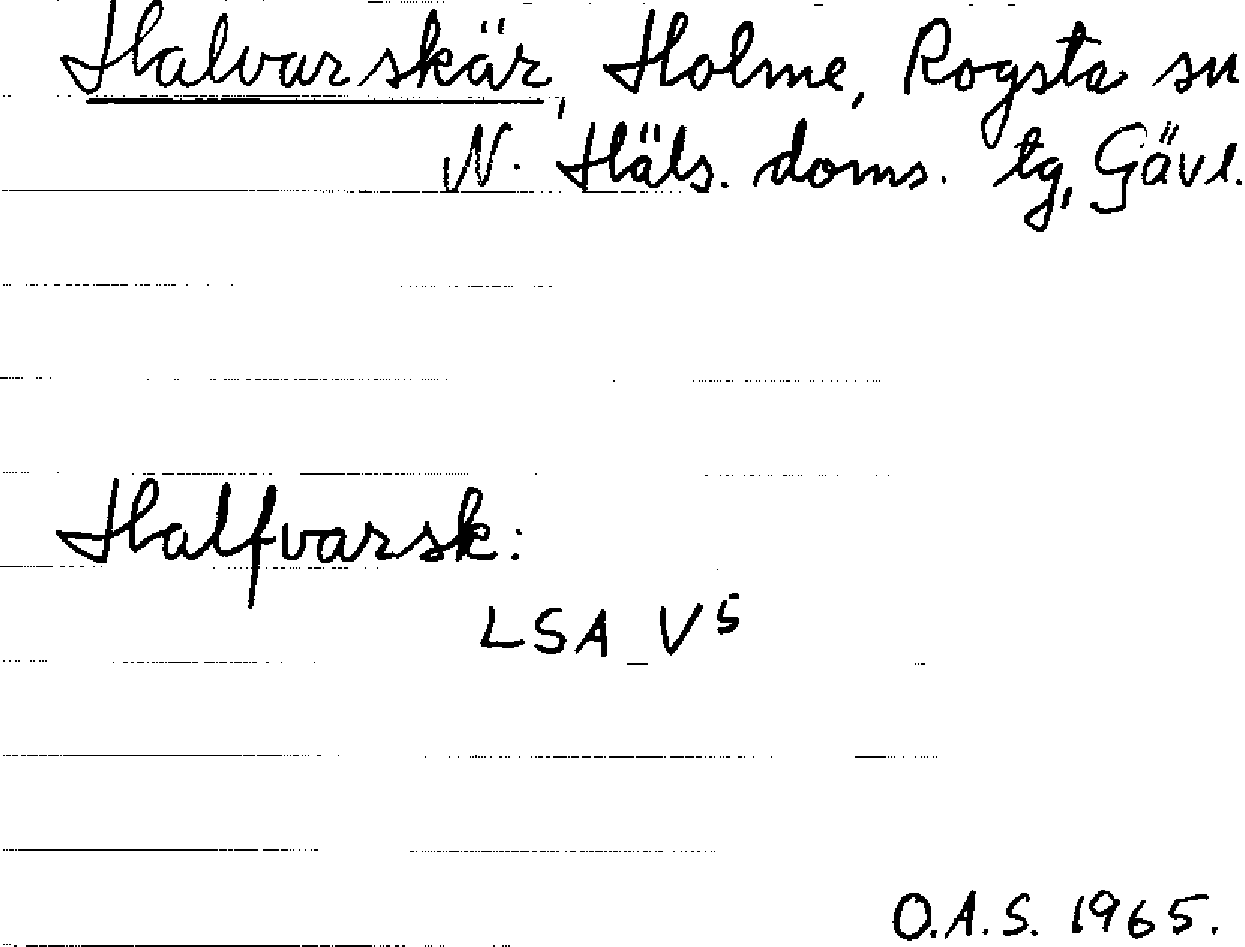 Halvarskär, Holme, Rogsta sn
N. Häls. doms. tg, Gävl.
Halfvarsk:
LSA V5
O.A.S. 1965.